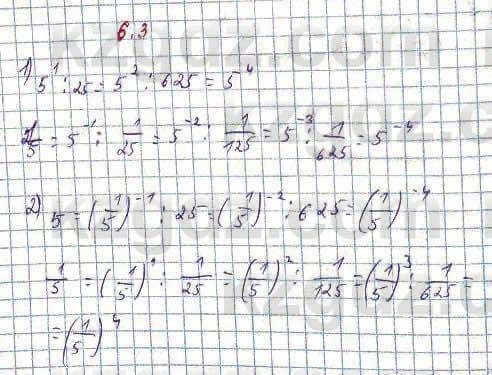 6.3
1) 5¹ ; 25 = 5² ; 625 = 5⁴
1/5 = 5⁻¹ ; 1/25 = 5⁻² ; 1/125 = 5⁻³ ; 1/625 = 5⁻⁴
2) 5 = (1/5)⁻¹ ; 25 = (1/5)⁻² ; 625 = (1/5)⁻⁴
1/5 = (1/5)¹ ; 1/25 = (1/5)² ; 1/125 = (1/5)³ ; 1/625 =
= (1/5)⁴